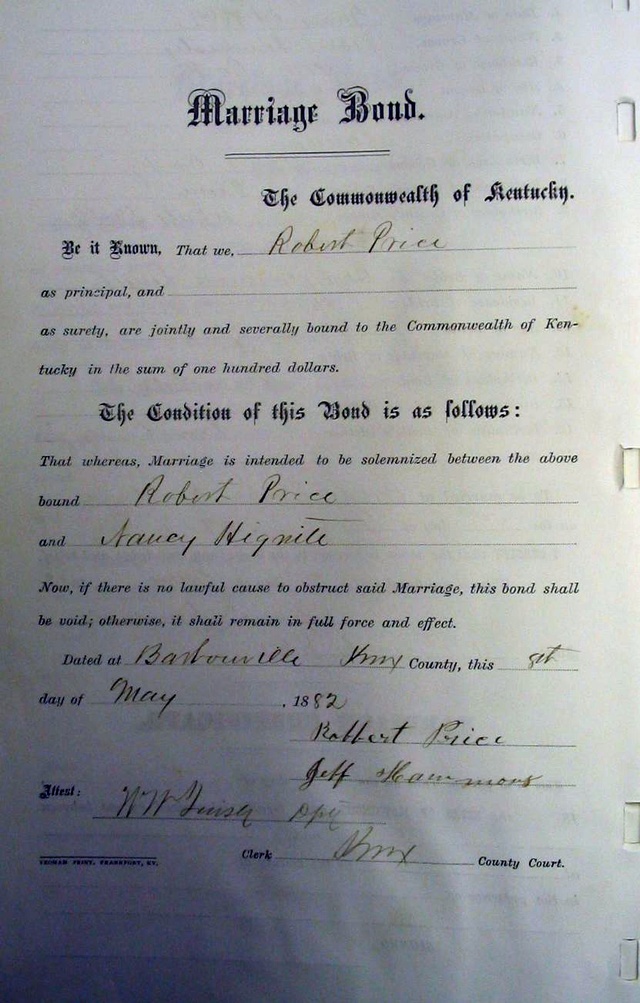 Marriage Bond.
The Commonwealth of Kentucky.
Be it Known, That we, Robert Price
as principal, and
as surety, are jointly and severally bound to the Commonwealth of Ken-
tucky in the sum of one hundred dollars.
The Condition of this Bond is as follows:
That whereas, Marriage is intended to be solemnized between the above
bound Robert Price
and Nancy Hignite
Now, if there is no lawful cause to obstruct said Marriage, this bond shall
be void; otherwise, it shall remain in full force and effect.
Dated at Barbourville Knox County, this 8th
day of May, 1882
Robbert Price
Jeff Hammons
Attest:
W W
Clerk Knox County Court.
YEOMAN PRINT, FRANKFORT, KY.